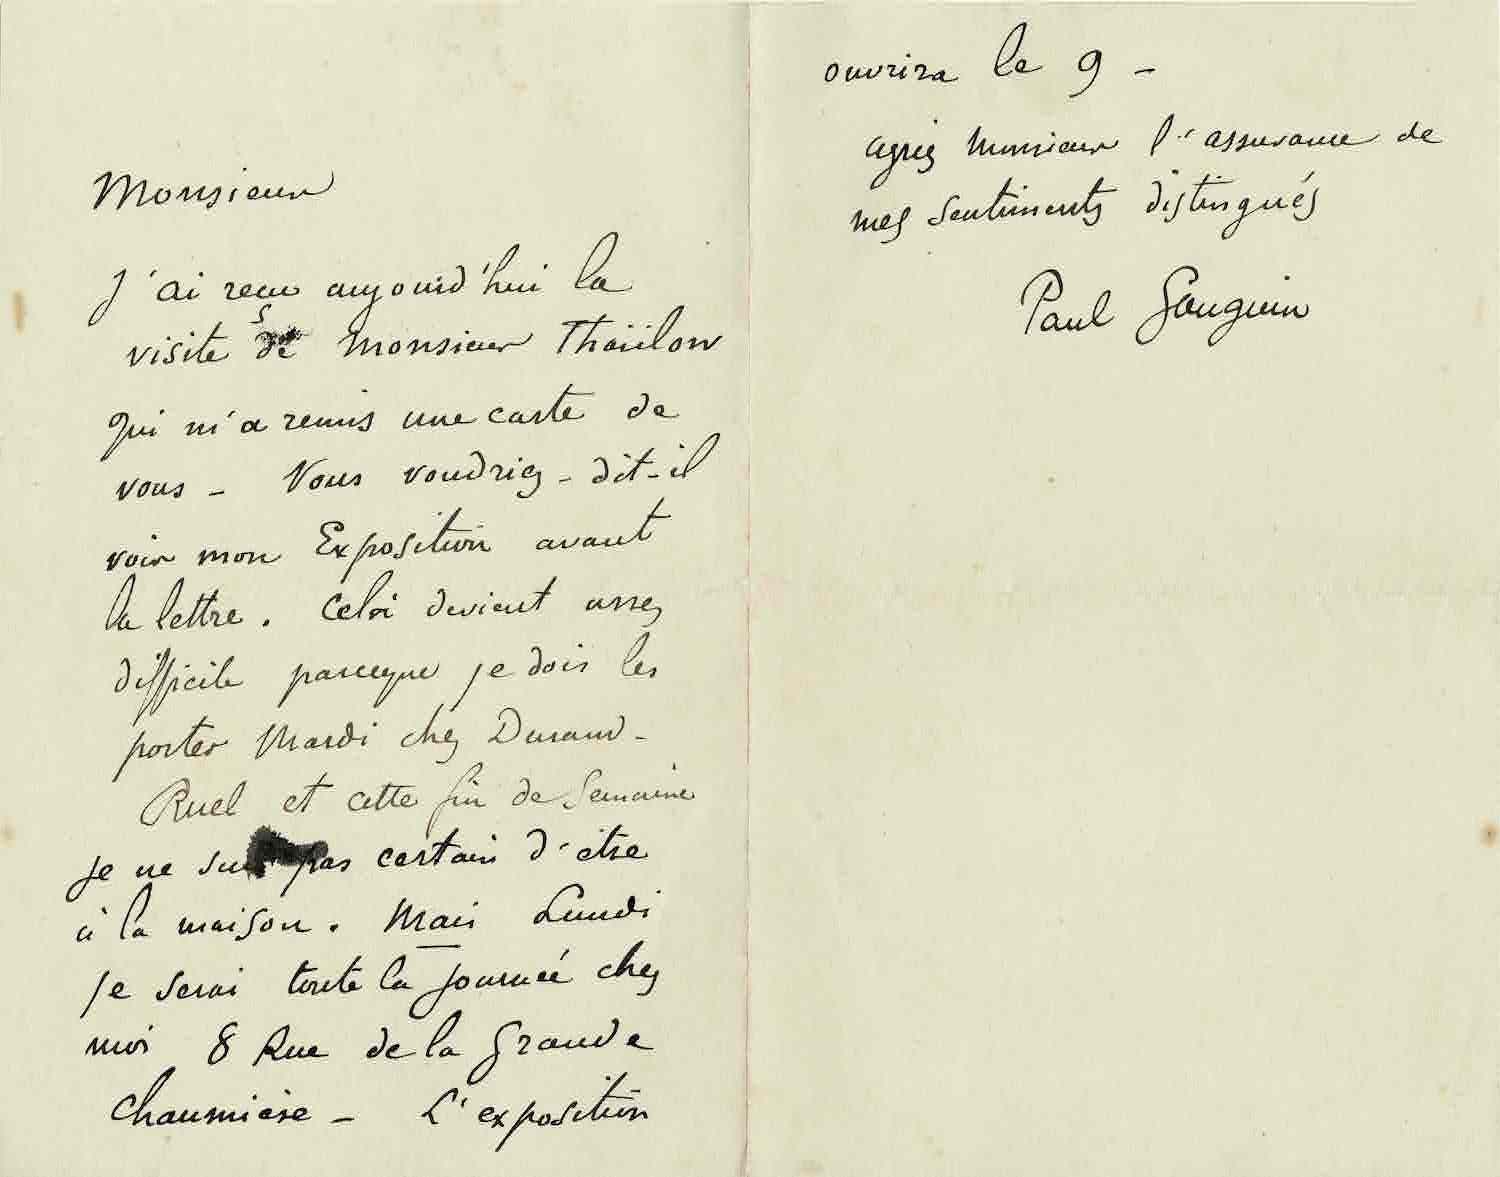 Monsieur
J'ai reçu aujourd'hui la
visite de Monsieur Thaiilon
qui m'a remis une carte de
vous - Vous voudriez - dit-il
voir mon Exposition avant
la lettre. Celà devient assez
difficile parceque je dois les
porter Mardi chez Durand-
Ruel et cette fin de Semaine
je ne suis pas certain d'être
à la maison. Mais Lundi
je serai toute la journeé chez
moi 8 Rue de la Grande
Chaumière - L'exposition
ouvrira le 9 -
agréez Monsieur l'assurance de
mes sentiments distingués
Paul Gauguin